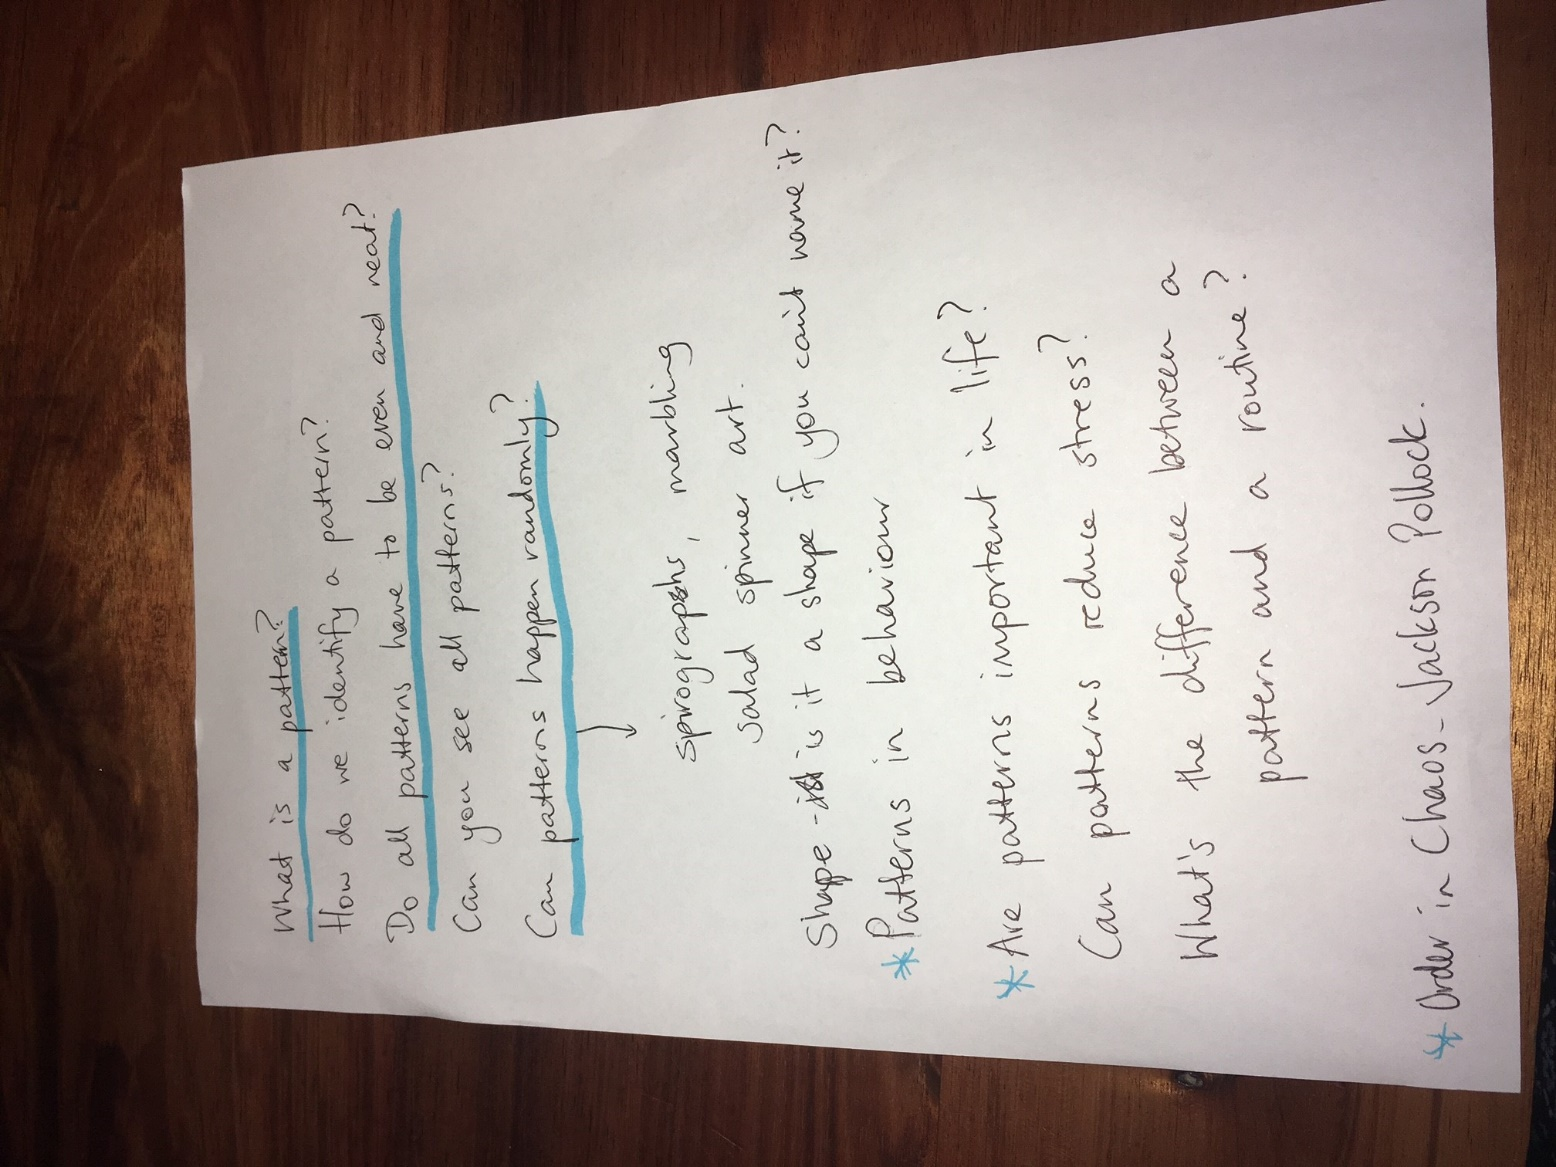 What is a pattern?
How do we identify a pattern?
Do all patterns have to be even and neat?
Can you see all patterns?
Can patterns happen randomly?
spirographs, marbling
salad spinner art.
Shape - is it a shape if you can't name it?
* Patterns in behaviour
* Are patterns important in life?
Can patterns reduce stress?
What's the difference between a
pattern and a routine?
* Order in Chaos - Jackson Pollock.